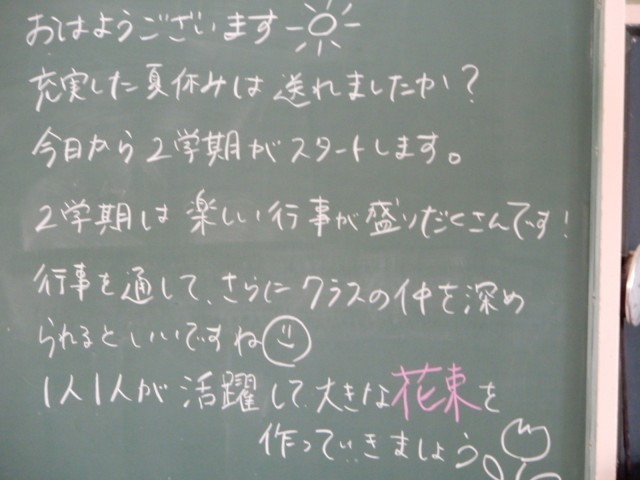 おはようございます
充実した夏休みは送れましたか？
今日から2学期がスタートします。
2学期は楽しい行事が盛りだくさんです！
行事を通して、さらにクラスの仲を深め
られるといいですね
1人1人が活躍して大きな花束を
作っていきましょう。